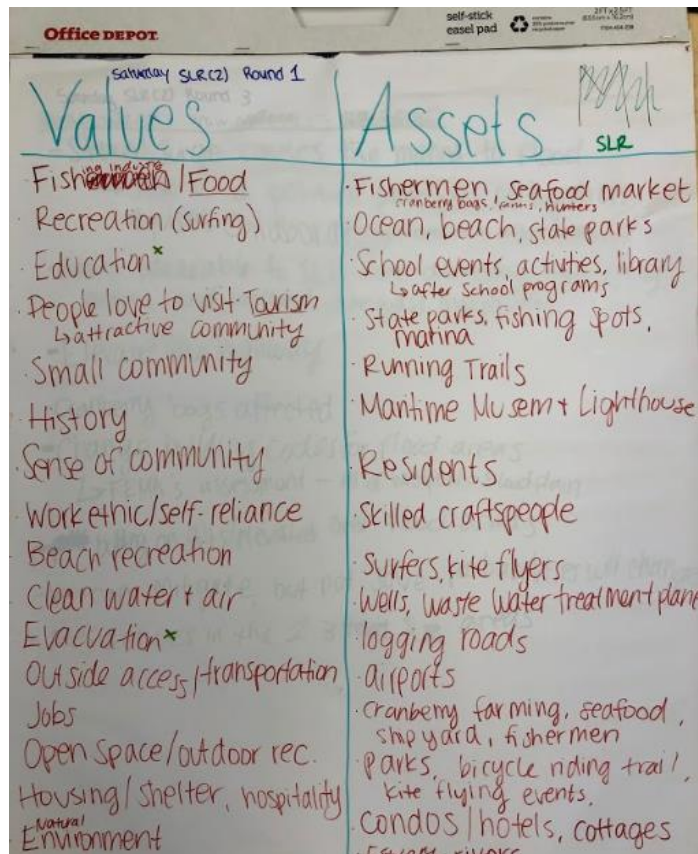 Office DEPOT
self-stick
easel pad
Saturday SLR(2) Round 1
Values
Assets
SLR
ing industry
Fish / Food
Recreation (surfing)
Education x
People love to visit. Tourism
↳ attractive community
Small community
History
Sense of community
Work ethic/self-reliance
Beach recreation
Clean water + air
Evacuation x
Outside access/transportation
Jobs
Open Space/outdoor rec.
Housing/shelter, hospitality
Natural
Environment
· Fishermen, seafood market
cranberry bogs, farms, hunters
· Ocean, beach, state parks
· School events, activities, library
↳ after school programs
· State parks, fishing spots,
marina
· Running Trails
· Maritime Musem + Lighthouse
· Residents
· Skilled craftspeople
· Surfers, kite flyers
· Wells, waste water treatment plant
· logging roads
· airports
· cranberry farming, seafood,
shipyard, fishermen
· parks, bicycle riding trail,
kite flying events,
· condos/hotels, cottages